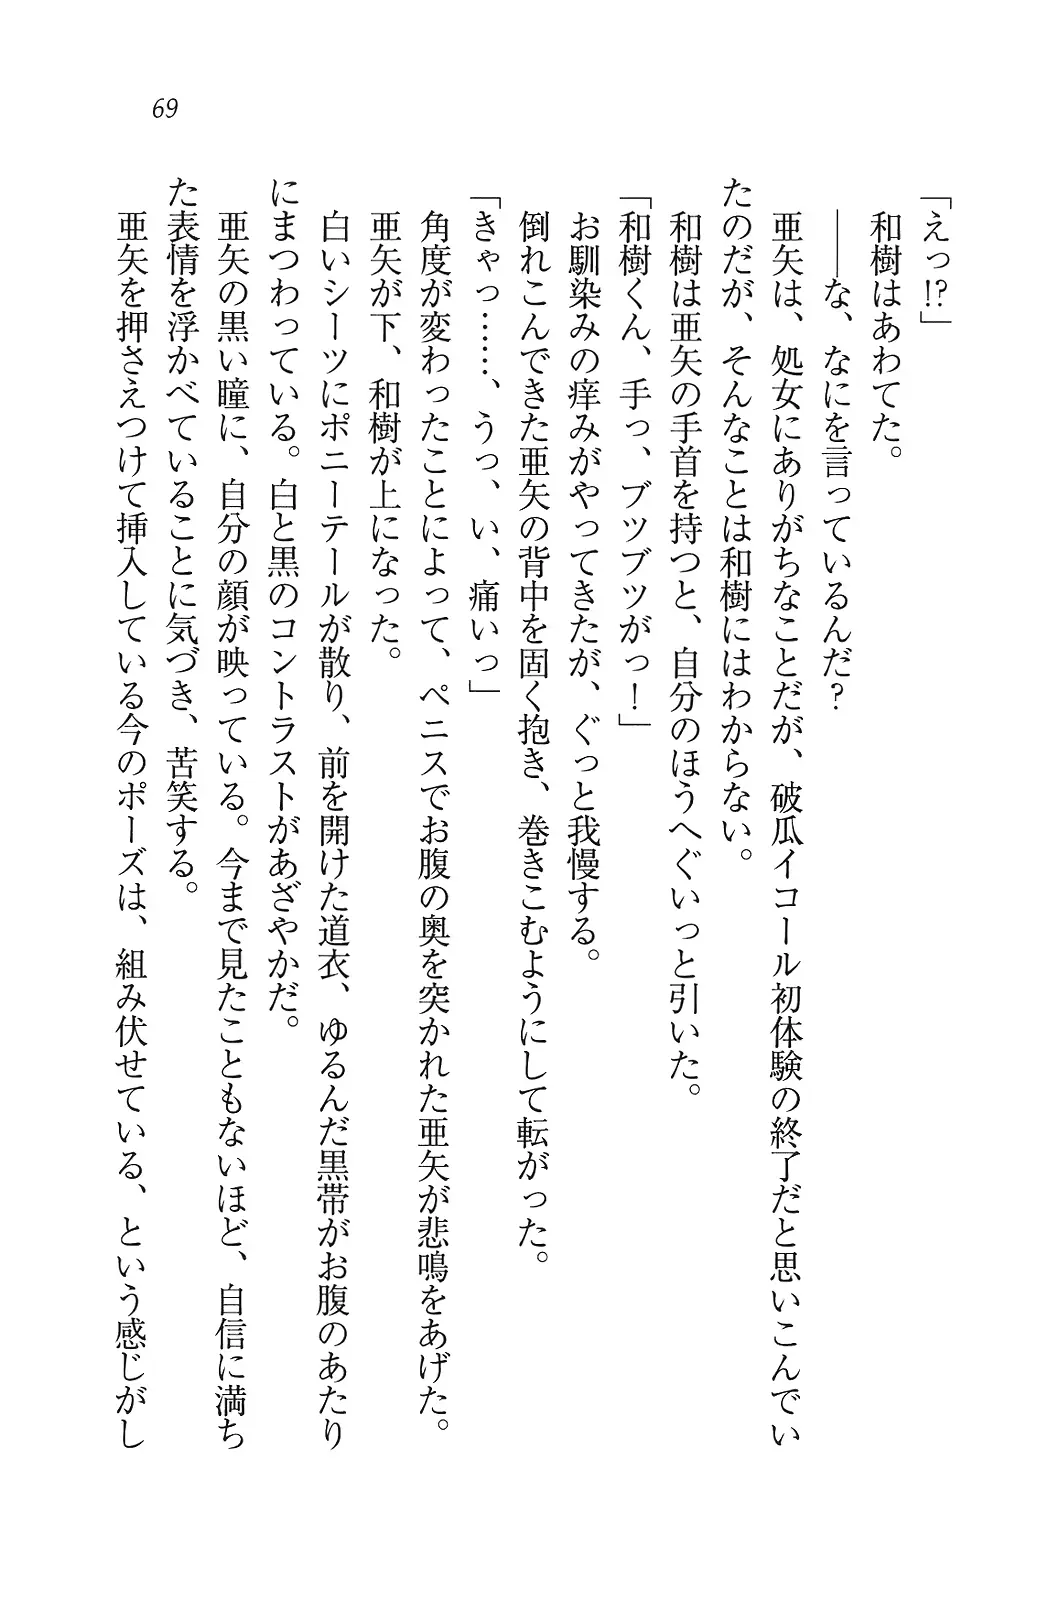 69
「えっ!?」
和樹はあわてた。
――な、なにを言っているんだ?
亜矢は、処女にありがちなことだが、破瓜イコール初体験の終了だと思いこんでい
たのだが、そんなことは和樹にはわからない。
和樹は亜矢の手首を持つと、自分のほうへぐいっと引いた。
「和樹くん、手っ、ブツブツがっ!」
お馴染みの痒みがやってきたが、ぐっと我慢する。
倒れこんできた亜矢の背中を固く抱き、巻きこむようにして転がった。
「きゃっ……、うっ、い、痛いっ」
角度が変わったことによって、ペニスでお腹の奥を突かれた亜矢が悲鳴をあげた。
亜矢が下、和樹が上になった。
白いシーツにポニーテールが散り、前を開けた道衣、ゆるんだ黒帯がお腹のあたり
にまつわっている。白と黒のコントラストがあざやかだ。
亜矢の黒い瞳に、自分の顔が映っている。今まで見たこともないほど、自信に満ち
た表情を浮かべていることに気づき、苦笑する。
亜矢を押さえつけて挿入している今のポーズは、組み伏せている、という感じがし